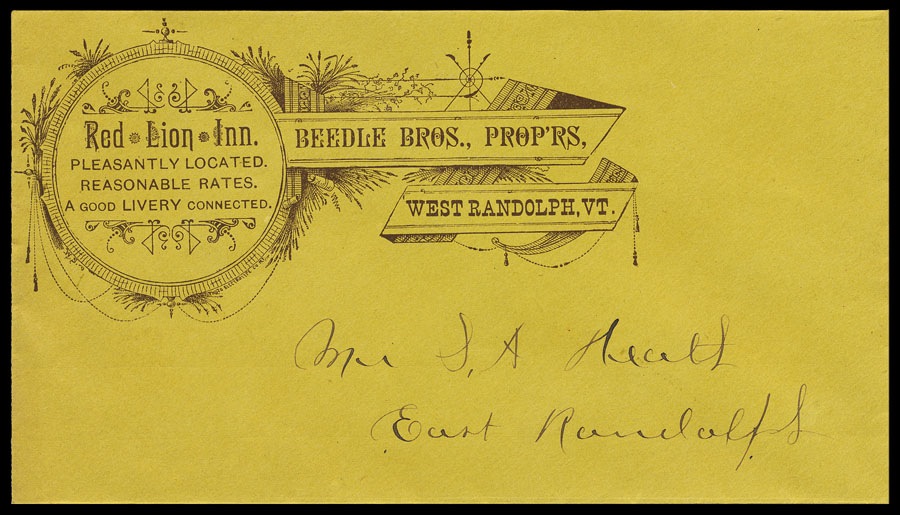 Red Lion Inn.
PLEASANTLY LOCATED.
REASONABLE RATES.
A GOOD LIVERY CONNECTED.
BEEDLE BROS., PROP'RS,
WEST RANDOLPH, VT.
Mr S, A Heath
East Randolph